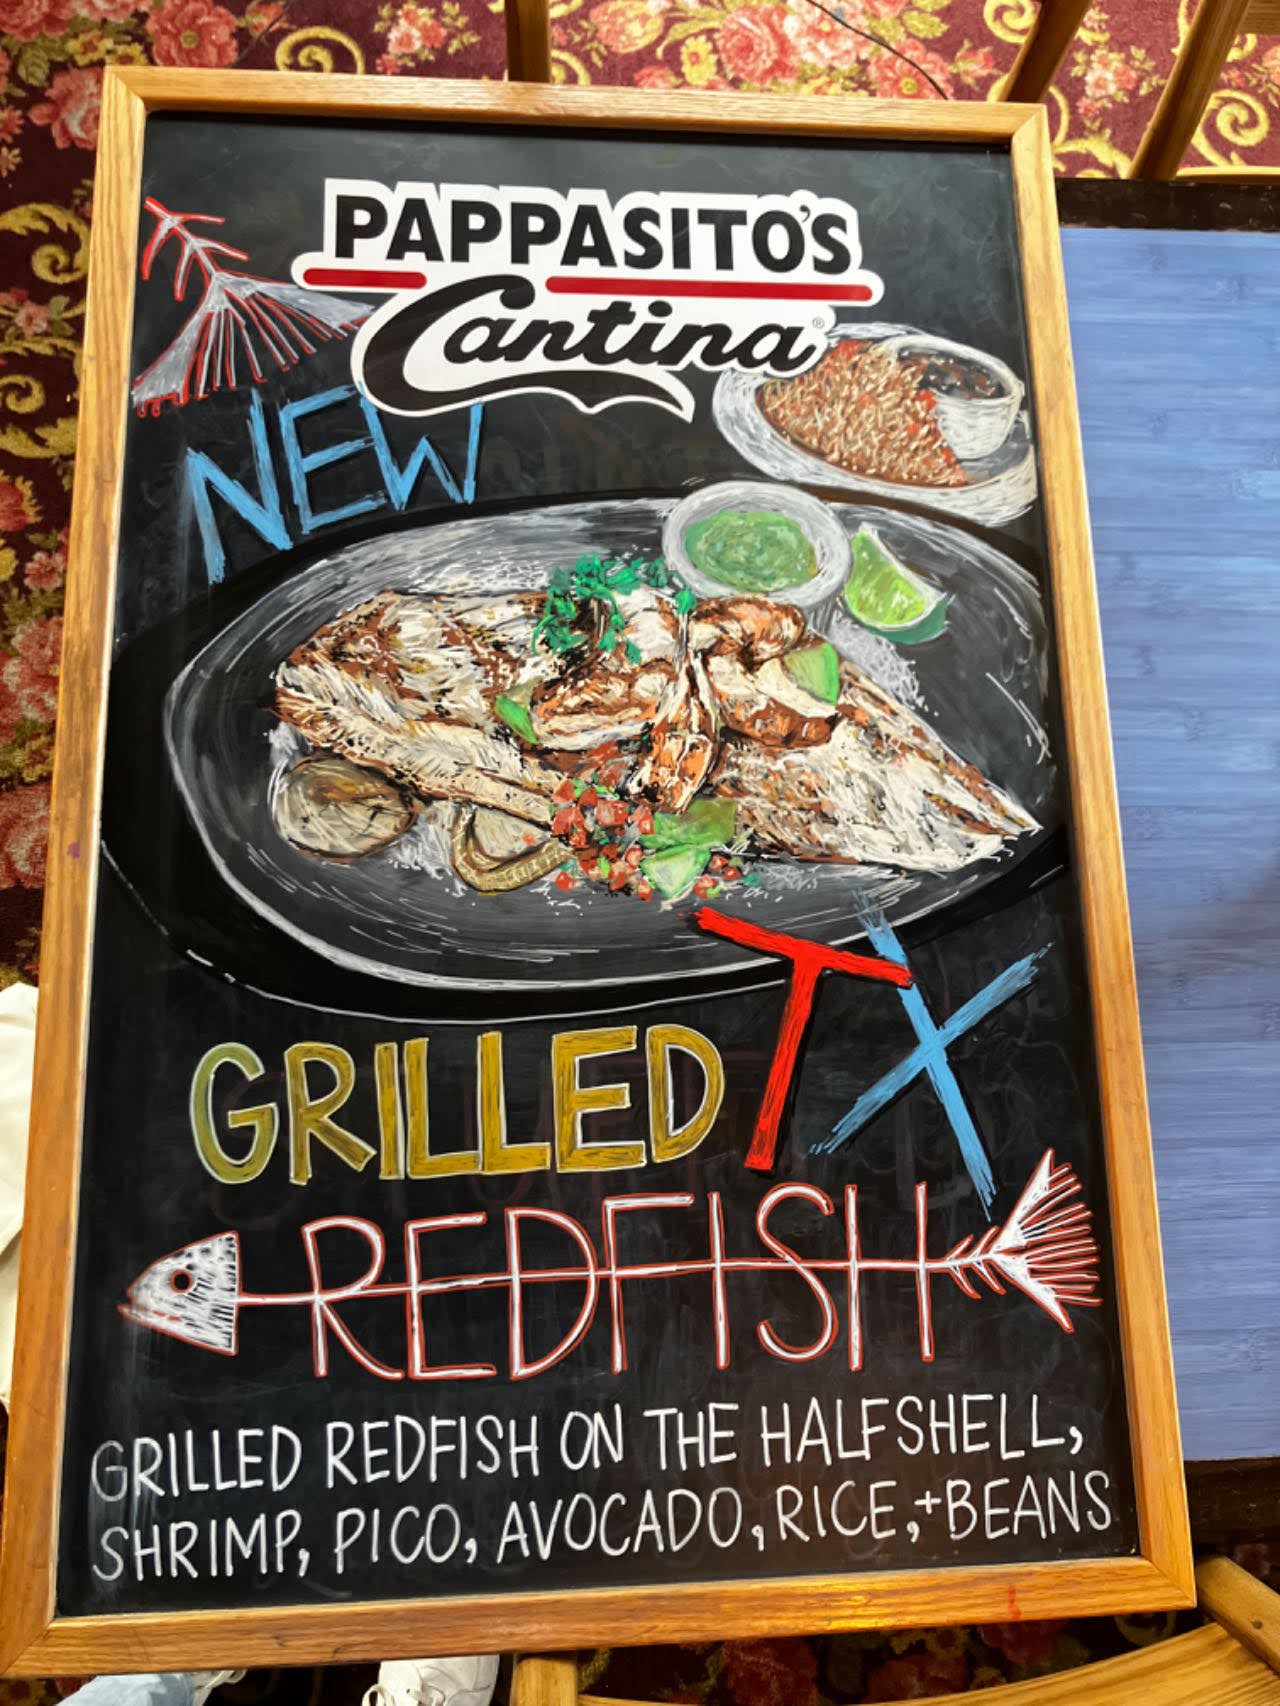 PAPPASITO'S
Cantina®
NEW
GRILLED TX
REDFISH
GRILLED REDFISH ON THE HALFSHELL,
SHRIMP, PICO, AVOCADO, RICE, + BEANS